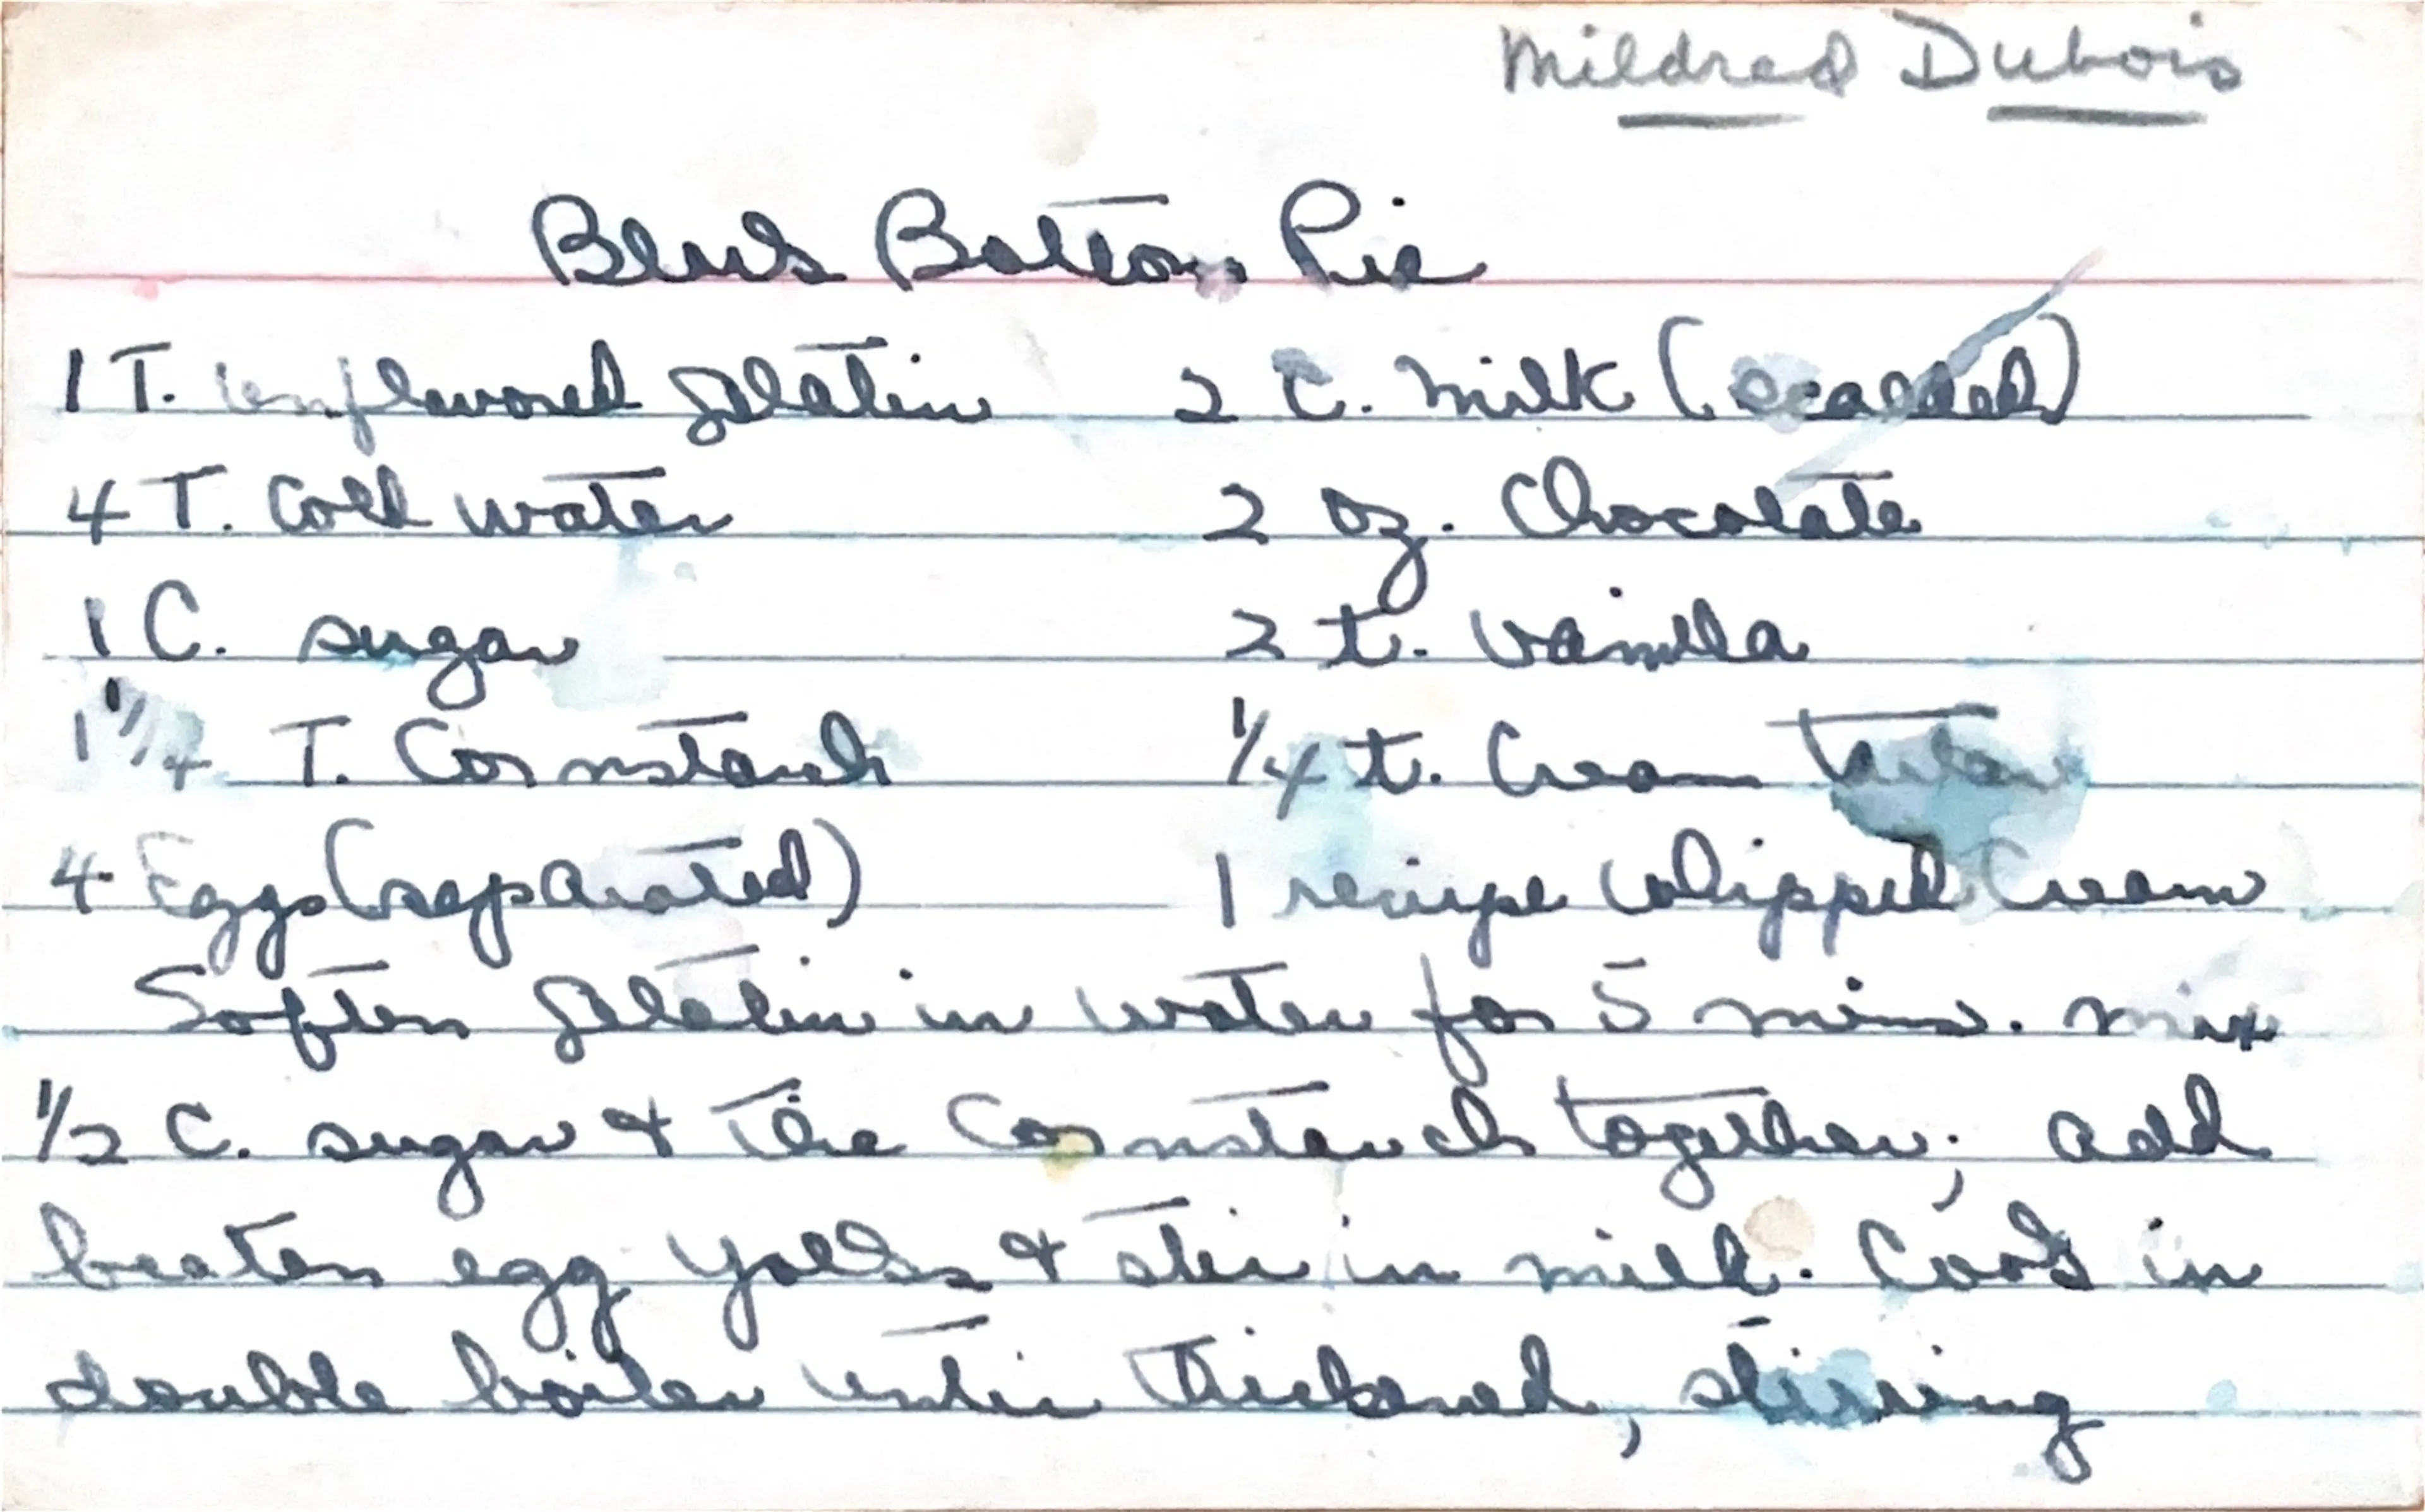 Mildred Dubois
Black Bottom Pie
1 T. unflavored gelatin 2 C. milk (scalded)
4 T. Cold water 2 oz. Chocolate
1 C. sugar 2 t. Vanilla
1 1/4 T. Cornstarch 1/4 t. Cream Tartar
4 Eggs (separated) 1 recipe Whipped Cream
Soften gelatin in water for 5 mins. mix
1/2 C. sugar & the Cornstarch together; add
beaten egg yolks & stir in milk. Cook in
double boiler until thickened, stirring